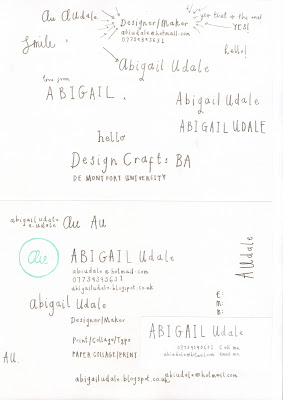 Au AUdale
Designer/Maker
abiudale@hotmail.com
yes that is the one!
YES!
Smile.
hello!
Abigail Udale
love from
ABIGAIL.
Abigail Udale
ABIGAIL UDALE
hello
Design Crafts BA
DE MONTFORT UNIVERSITY
abigail udale
a.udale
Au AU
Au
ABIGAIL Udale
abiudale@hotmail.com
abigailudale.blogspot.co.uk
AUdale
Abigail Udale
Designer/Maker
E:
M:
B:
Print/Collage/Type
PAPER COLLAGE/PRINT
ABIGAIL Udale
Call me
Email me
AU.
abigailudale.blogspot.co.uk
abiudale@hotmail.com